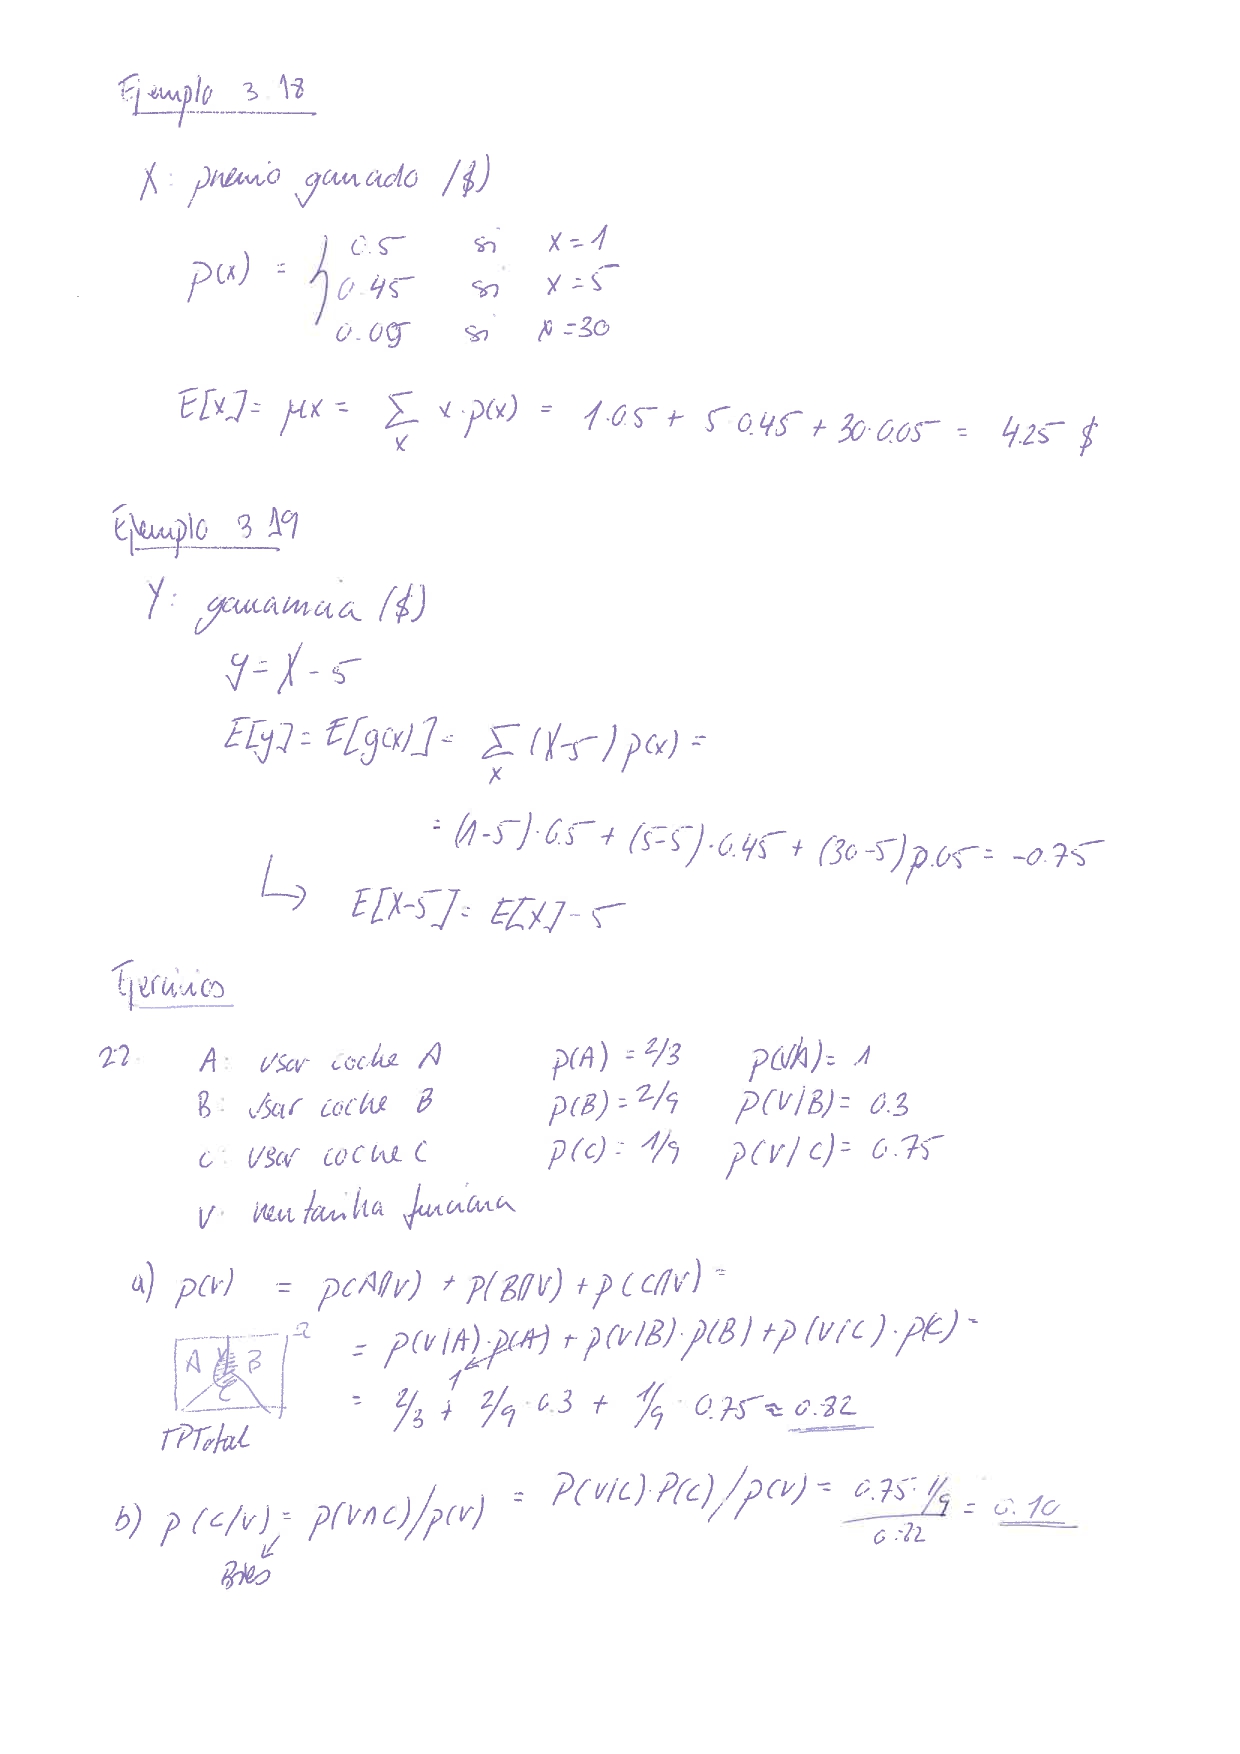 Ejemplo 3.18
X: premio ganado ($)
p(x) = { 0.5 si x=1
0.45 si x=5
0.05 si x=30
E[X]= μx = Σ x·p(x) = 1·0.5 + 5·0.45 + 30·0.05 = 4.25 $
x
Ejemplo 3.19
Y: ganancia ($)
y = X - 5
E[y] = E[g(x)] = Σ (X-5) p(x) =
x
= (1-5)·0.5 + (5-5)·0.45 + (30-5)0.05 = -0.75
↳ E[X-5] = E[X]-5
Ejercicios
22. A: usar coche A p(A) = 2/3 p(V/A)= 1
B: usar coche B p(B) = 2/9 p(V/B)= 0.3
C: usar coche C p(C) = 1/9 p(V/C)= 0.75
V: ventanilla funciona
a) p(V) = p(A∩V) + p(B∩V) + p(C∩V) =
Ω
= p(V/A)·p(A) + p(V/B)·p(B) + p(V/C)·p(C) =
A V B
C
1
= 2/3 + 2/9 · 0.3 + 1/9 · 0.75 ≈ 0.82
TPTotal
b) p(C/V) = p(V∩C)/p(V) = P(V/C)·P(C)/p(V) = 0.75·1/9 = 0.10
0.82
Bayes